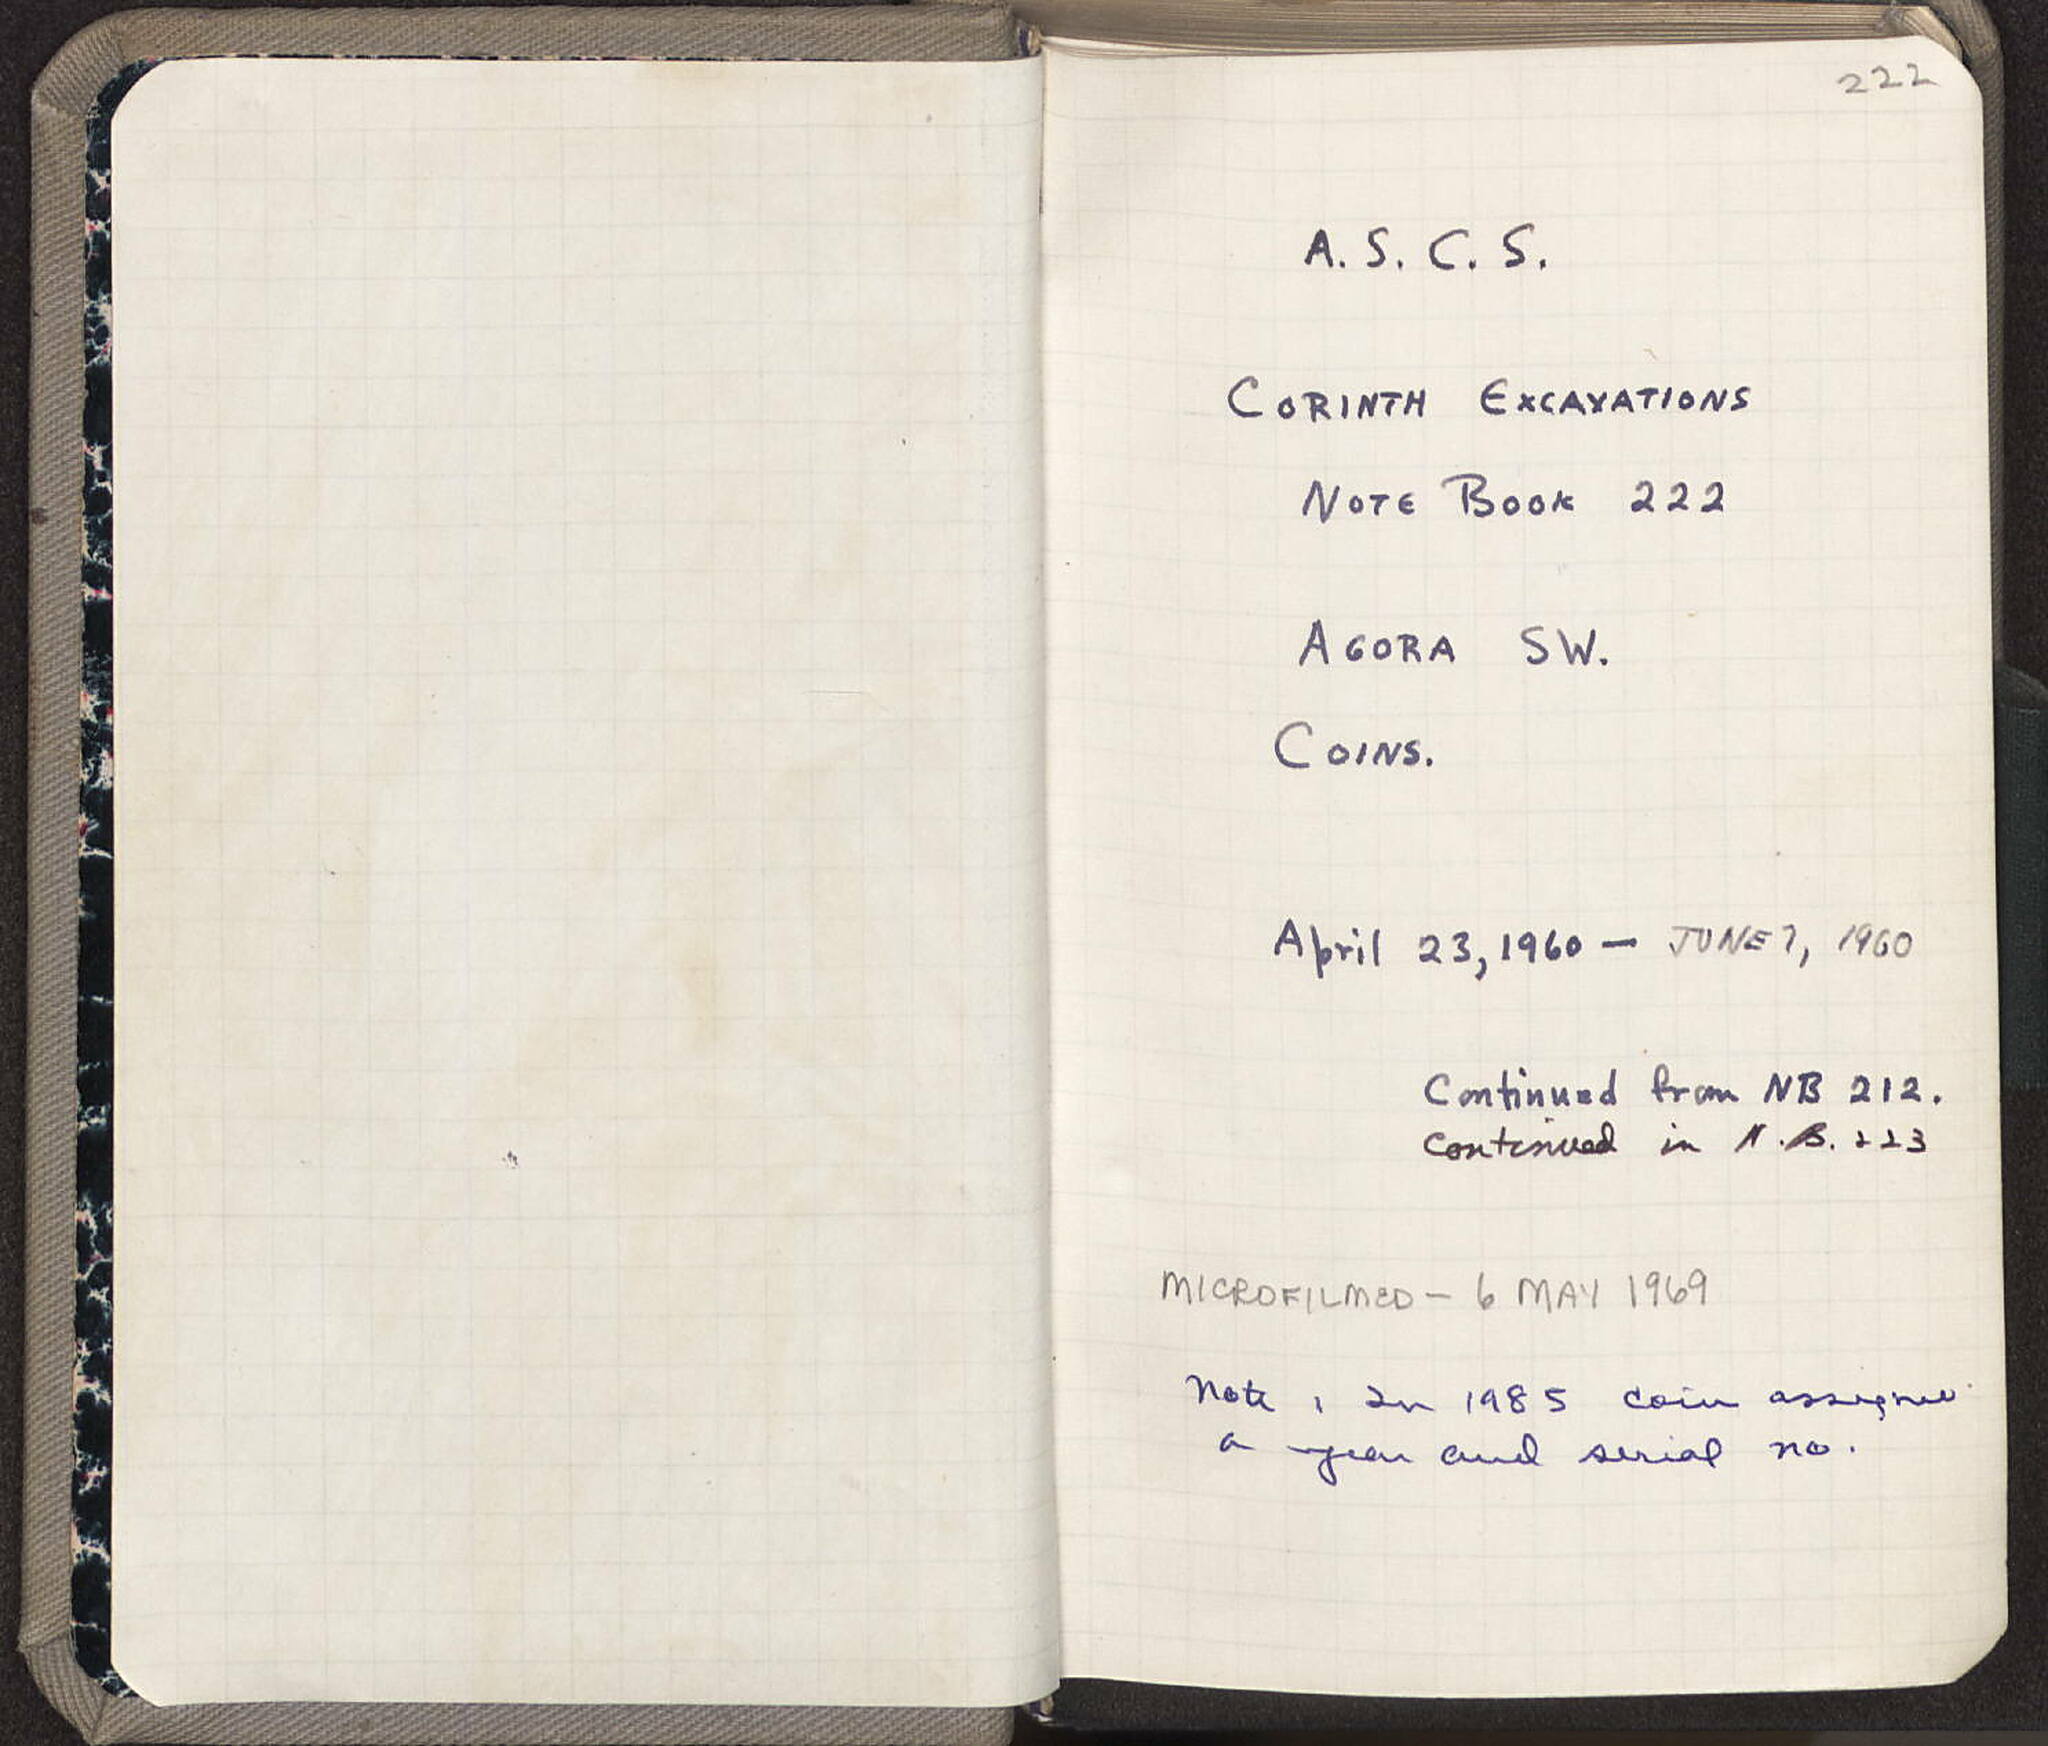 222
A. S. C. S.
CORINTH EXCAVATIONS
NOTE BOOK 222
AGORA SW.
COINS.
April 23, 1960 — JUNE 7, 1960
Continued from NB 212.
Continued in N.B. 223
MICROFILMED — 6 MAY 1969
Note: In 1985 coin assigned
a year and serial no.